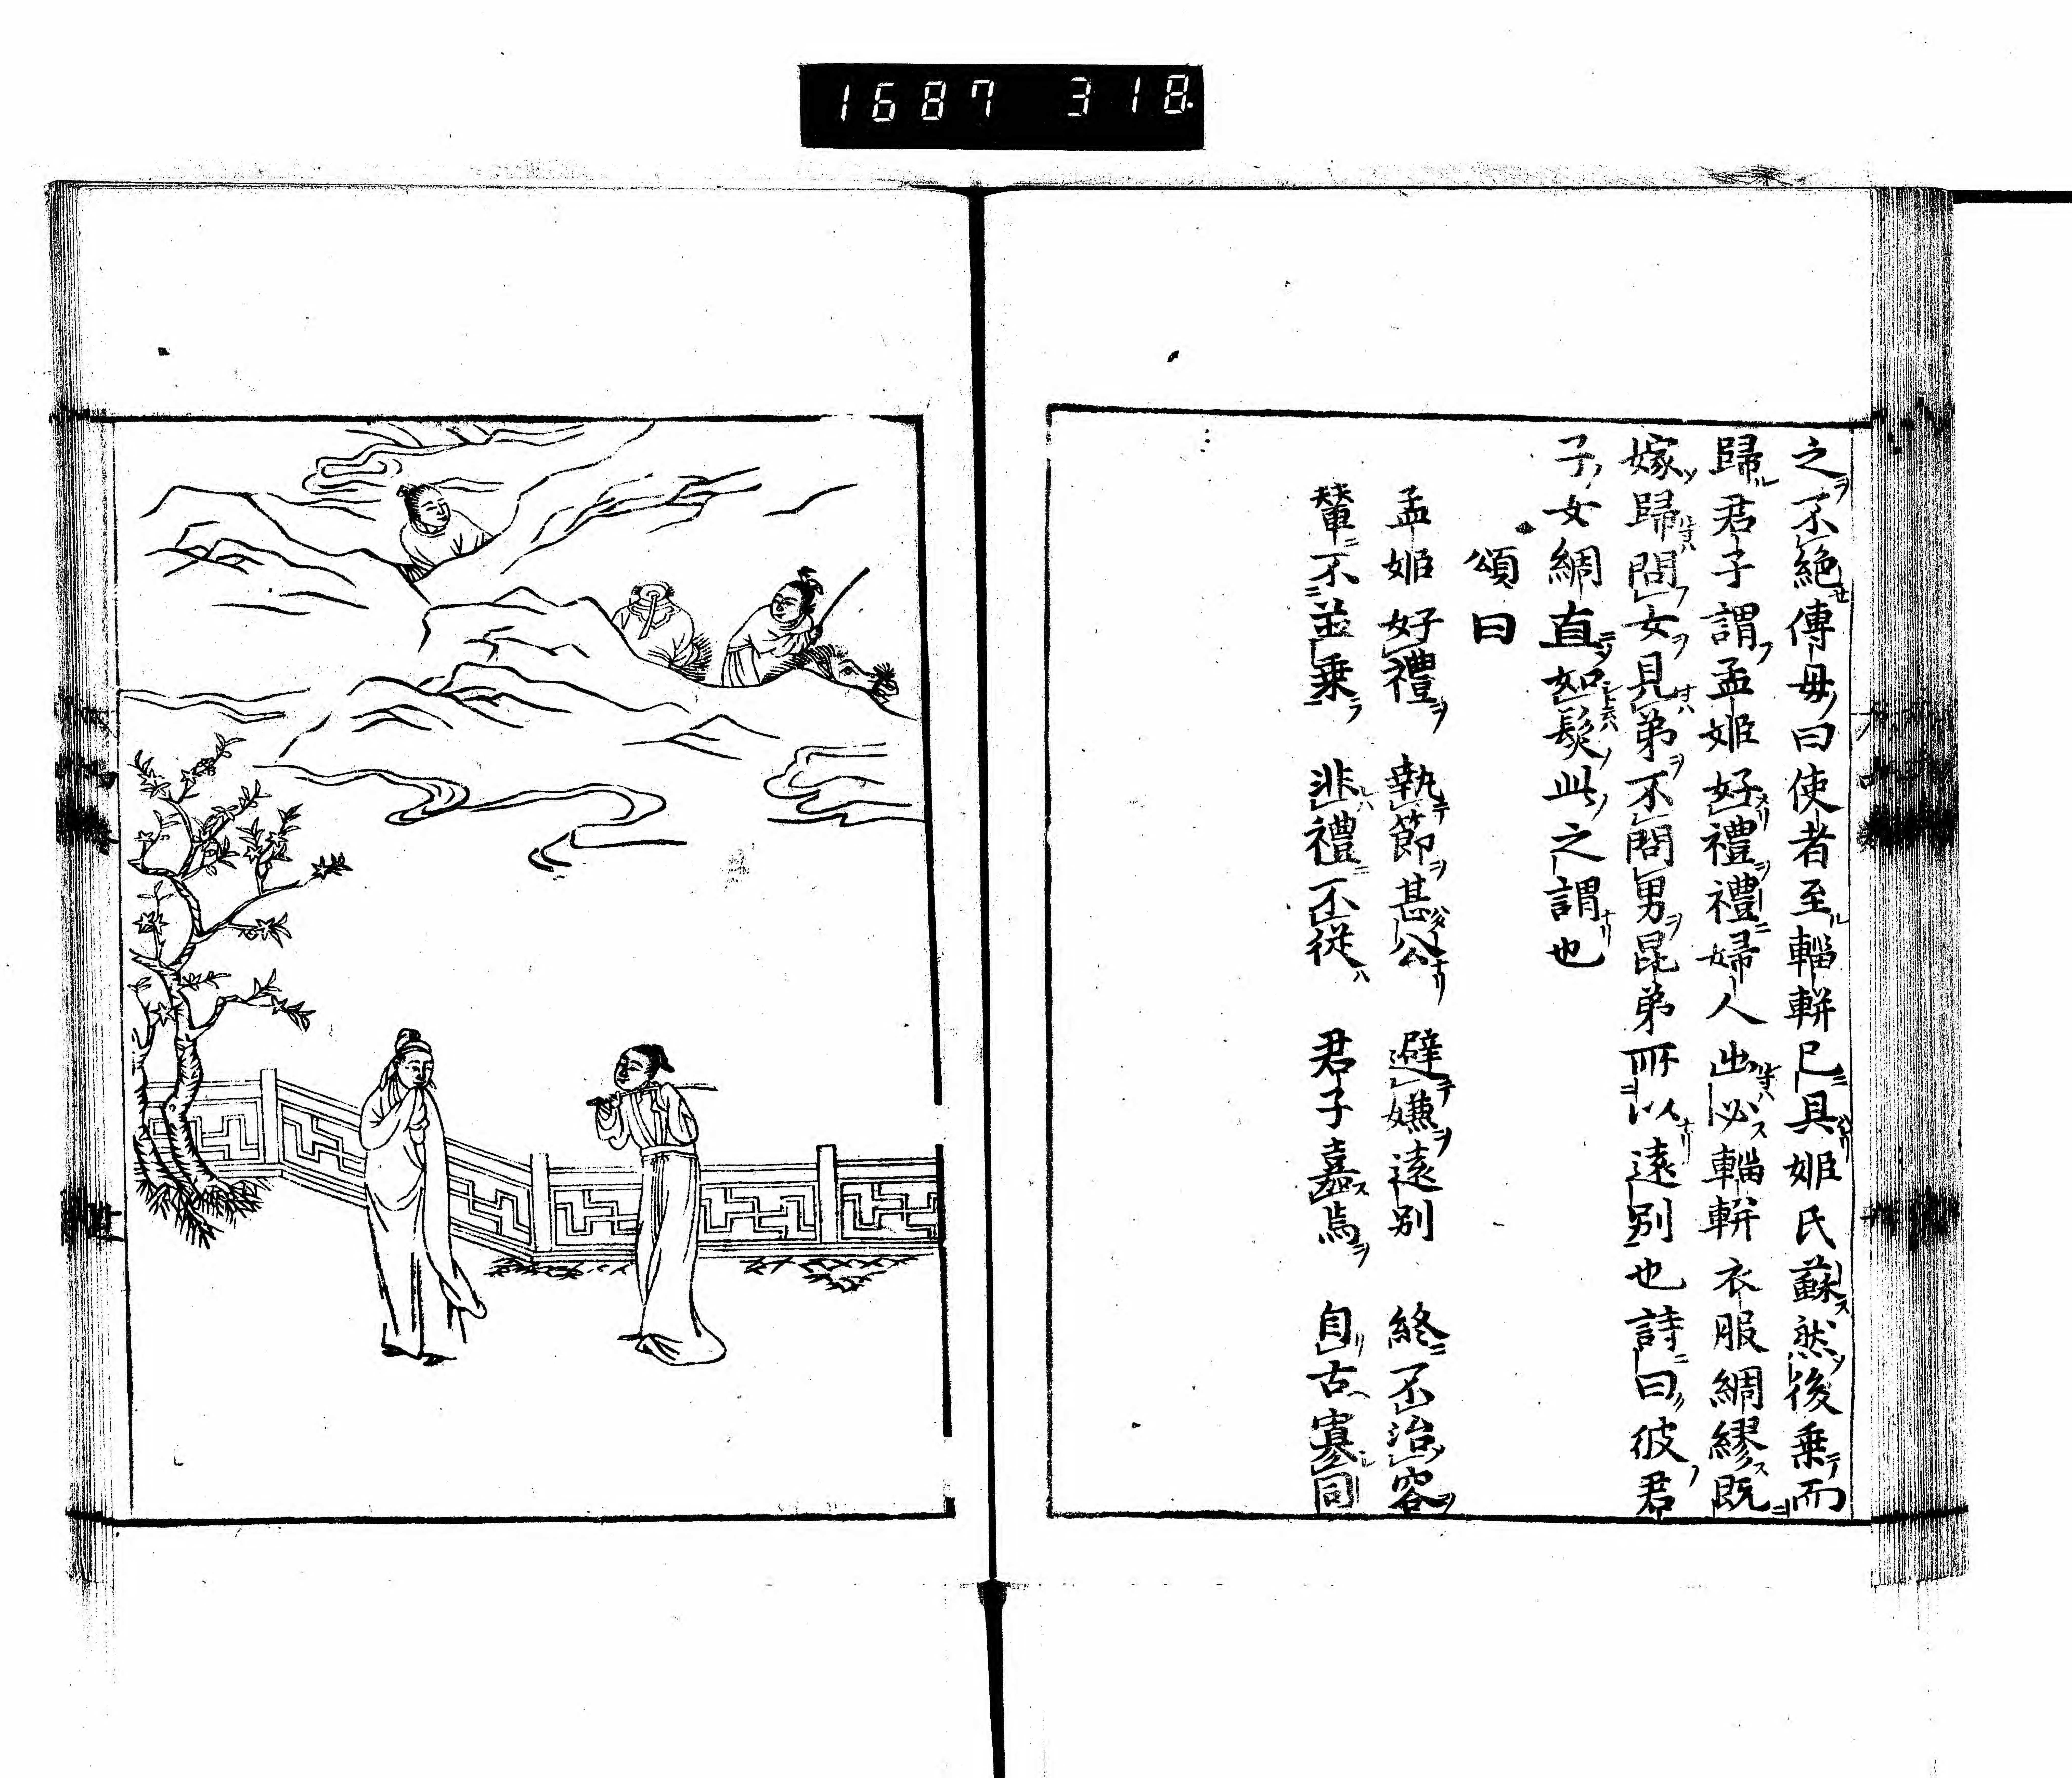 1687 318
之不絶傅母曰使者至輜軿已具姬氏蘇然後乗而
歸君子謂孟姬好禮禮婦人出必輜軿衣服綢繆既
嫁歸問女見弟不問男昆弟所以遠別也詩曰彼君
子女綢直如髮此之謂也
頌曰
孟姬好禮 執節甚公 避嫌遠別 終不冶容
輦不並乗 非禮不従 君子嘉焉 自古寡同